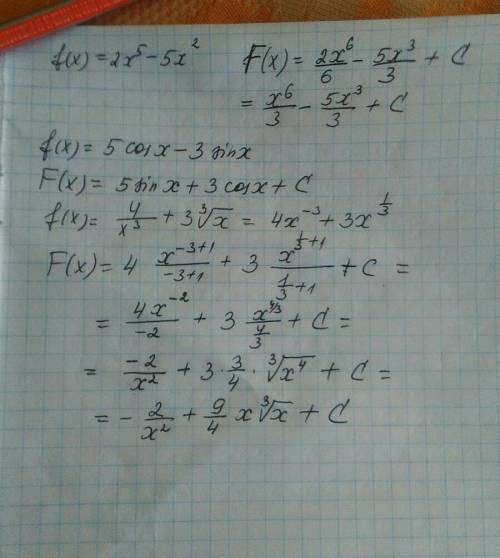 f(x) = 2x⁵ − 5x²    F(x) = 2x⁶/6 − 5x³/3 + C
= x⁶/3 − 5x³/3 + C
f(x) = 5 cos x − 3 sin x
F(x) = 5 sin x + 3 cos x + C
f(x) = 4/x³ + 3∛x = 4x⁻³ + 3x^(1/3)
F(x) = 4 x^(−3+1)/(−3+1) + 3 x^(1/3+1)/(1/3+1) + C =
= 4x⁻²/−2 + 3 x^(4/3)/(4/3) + C =
= −2/x² + 3 · 3/4 · ∛x⁴ + C =
= − 2/x² + 9/4 x∛x + C